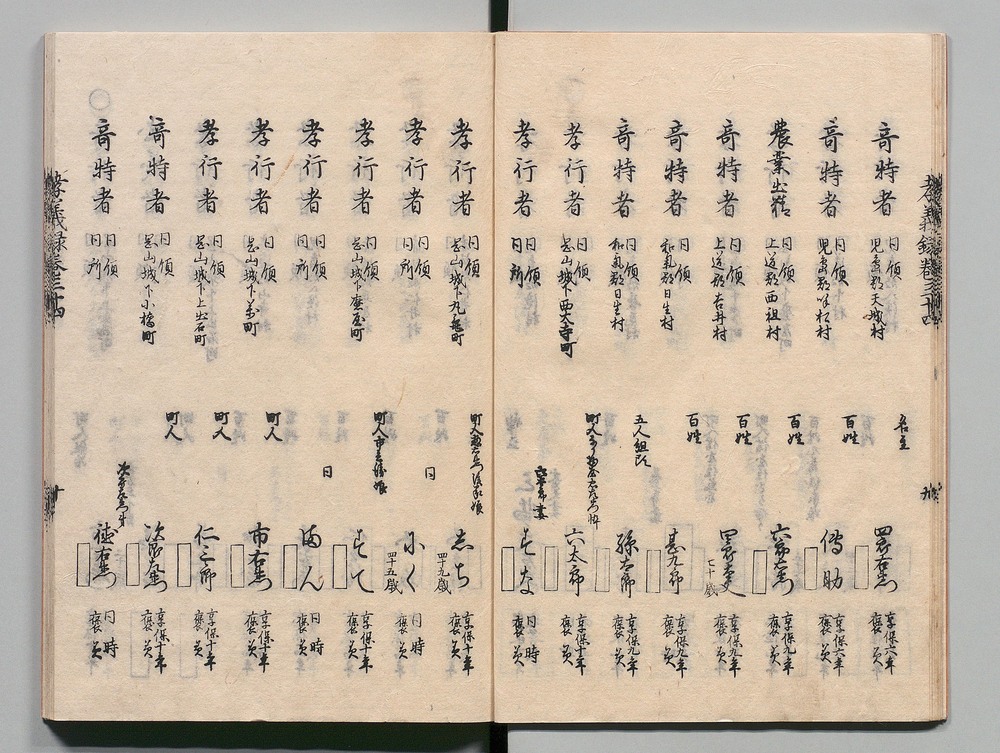 孝義録巻三十四
奇特者 同領 児島郡天城村 名主 四郎右衛門 享保六年 褒美
奇特者 同領 児島郡 百姓 傳助 享保六年 褒美
農業出精 同領 上道郡西祖村 百姓 六郎右衛門 享保九年 褒美
奇特者 同領 上道郡吉井村 百姓 四郎大夫 七十歳 享保九年 褒美
奇特者 同領 和気郡日生村 百姓 甚九郎 享保九年 褒美
奇特者 同領 和気郡日生村 五人組頭 孫太郎 享保九年 褒美
孝行者 同領 岡山城下西大寺町 町人 忰 六太郎 享保十年 褒美
孝行者 同領 同所 六太郎妻 すな 同時 褒美
孝行者 同領 岡山城下丸亀町 町人 後家娘 しち 四十九歳 享保十年 褒美
孝行者 同領 同所 同 ふく 四十五歳 同時 褒美
孝行者 同領 岡山城下磨屋町 町人 後家娘 すて 享保十年 褒美
孝行者 同領 同所 同 まん 同時 褒美
孝行者 同領 岡山城下 町 町人 市右衛門 享保十年 褒美
孝行者 同領 岡山城下上出石町 町人 仁三郎 享保十年 褒美
奇特者 同領 岡山城下小橋町 町人 次郎左衛門 享保十年 褒美
奇特者 同領 同所 次郎左衛門弟 徳右衛門 同時 褒美
孝義録巻三十四